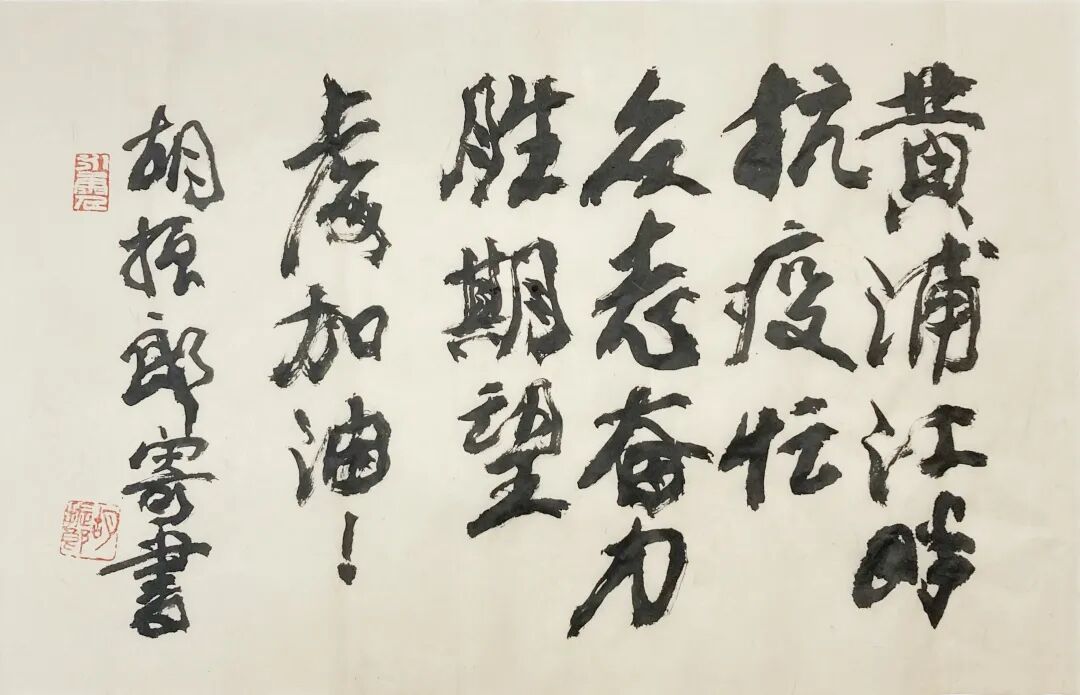 黄浦江畔
抗疫忙
众志奋力
胜期望
上海加油！
胡振郎寄書
胡振郎